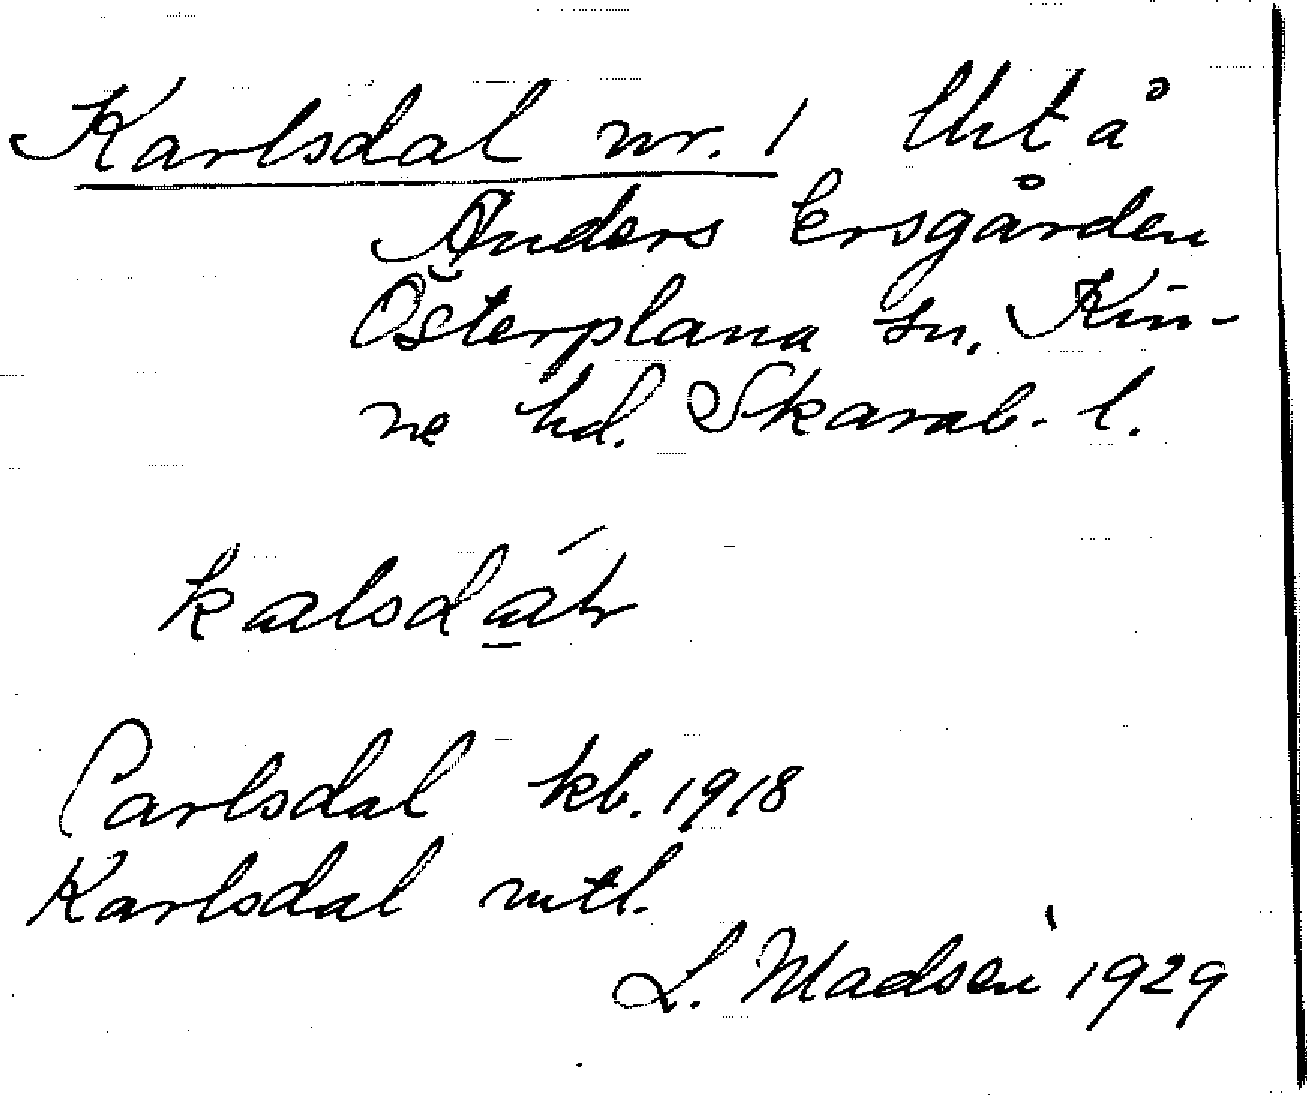 Karlsdal nr. 1 lht å
Anders Ersgården
Österplana sn. Kin-
ne hd. Skarab. l.
Carlsdal kb. 1918
Karlsdal mtl.
L. Madsén 1929